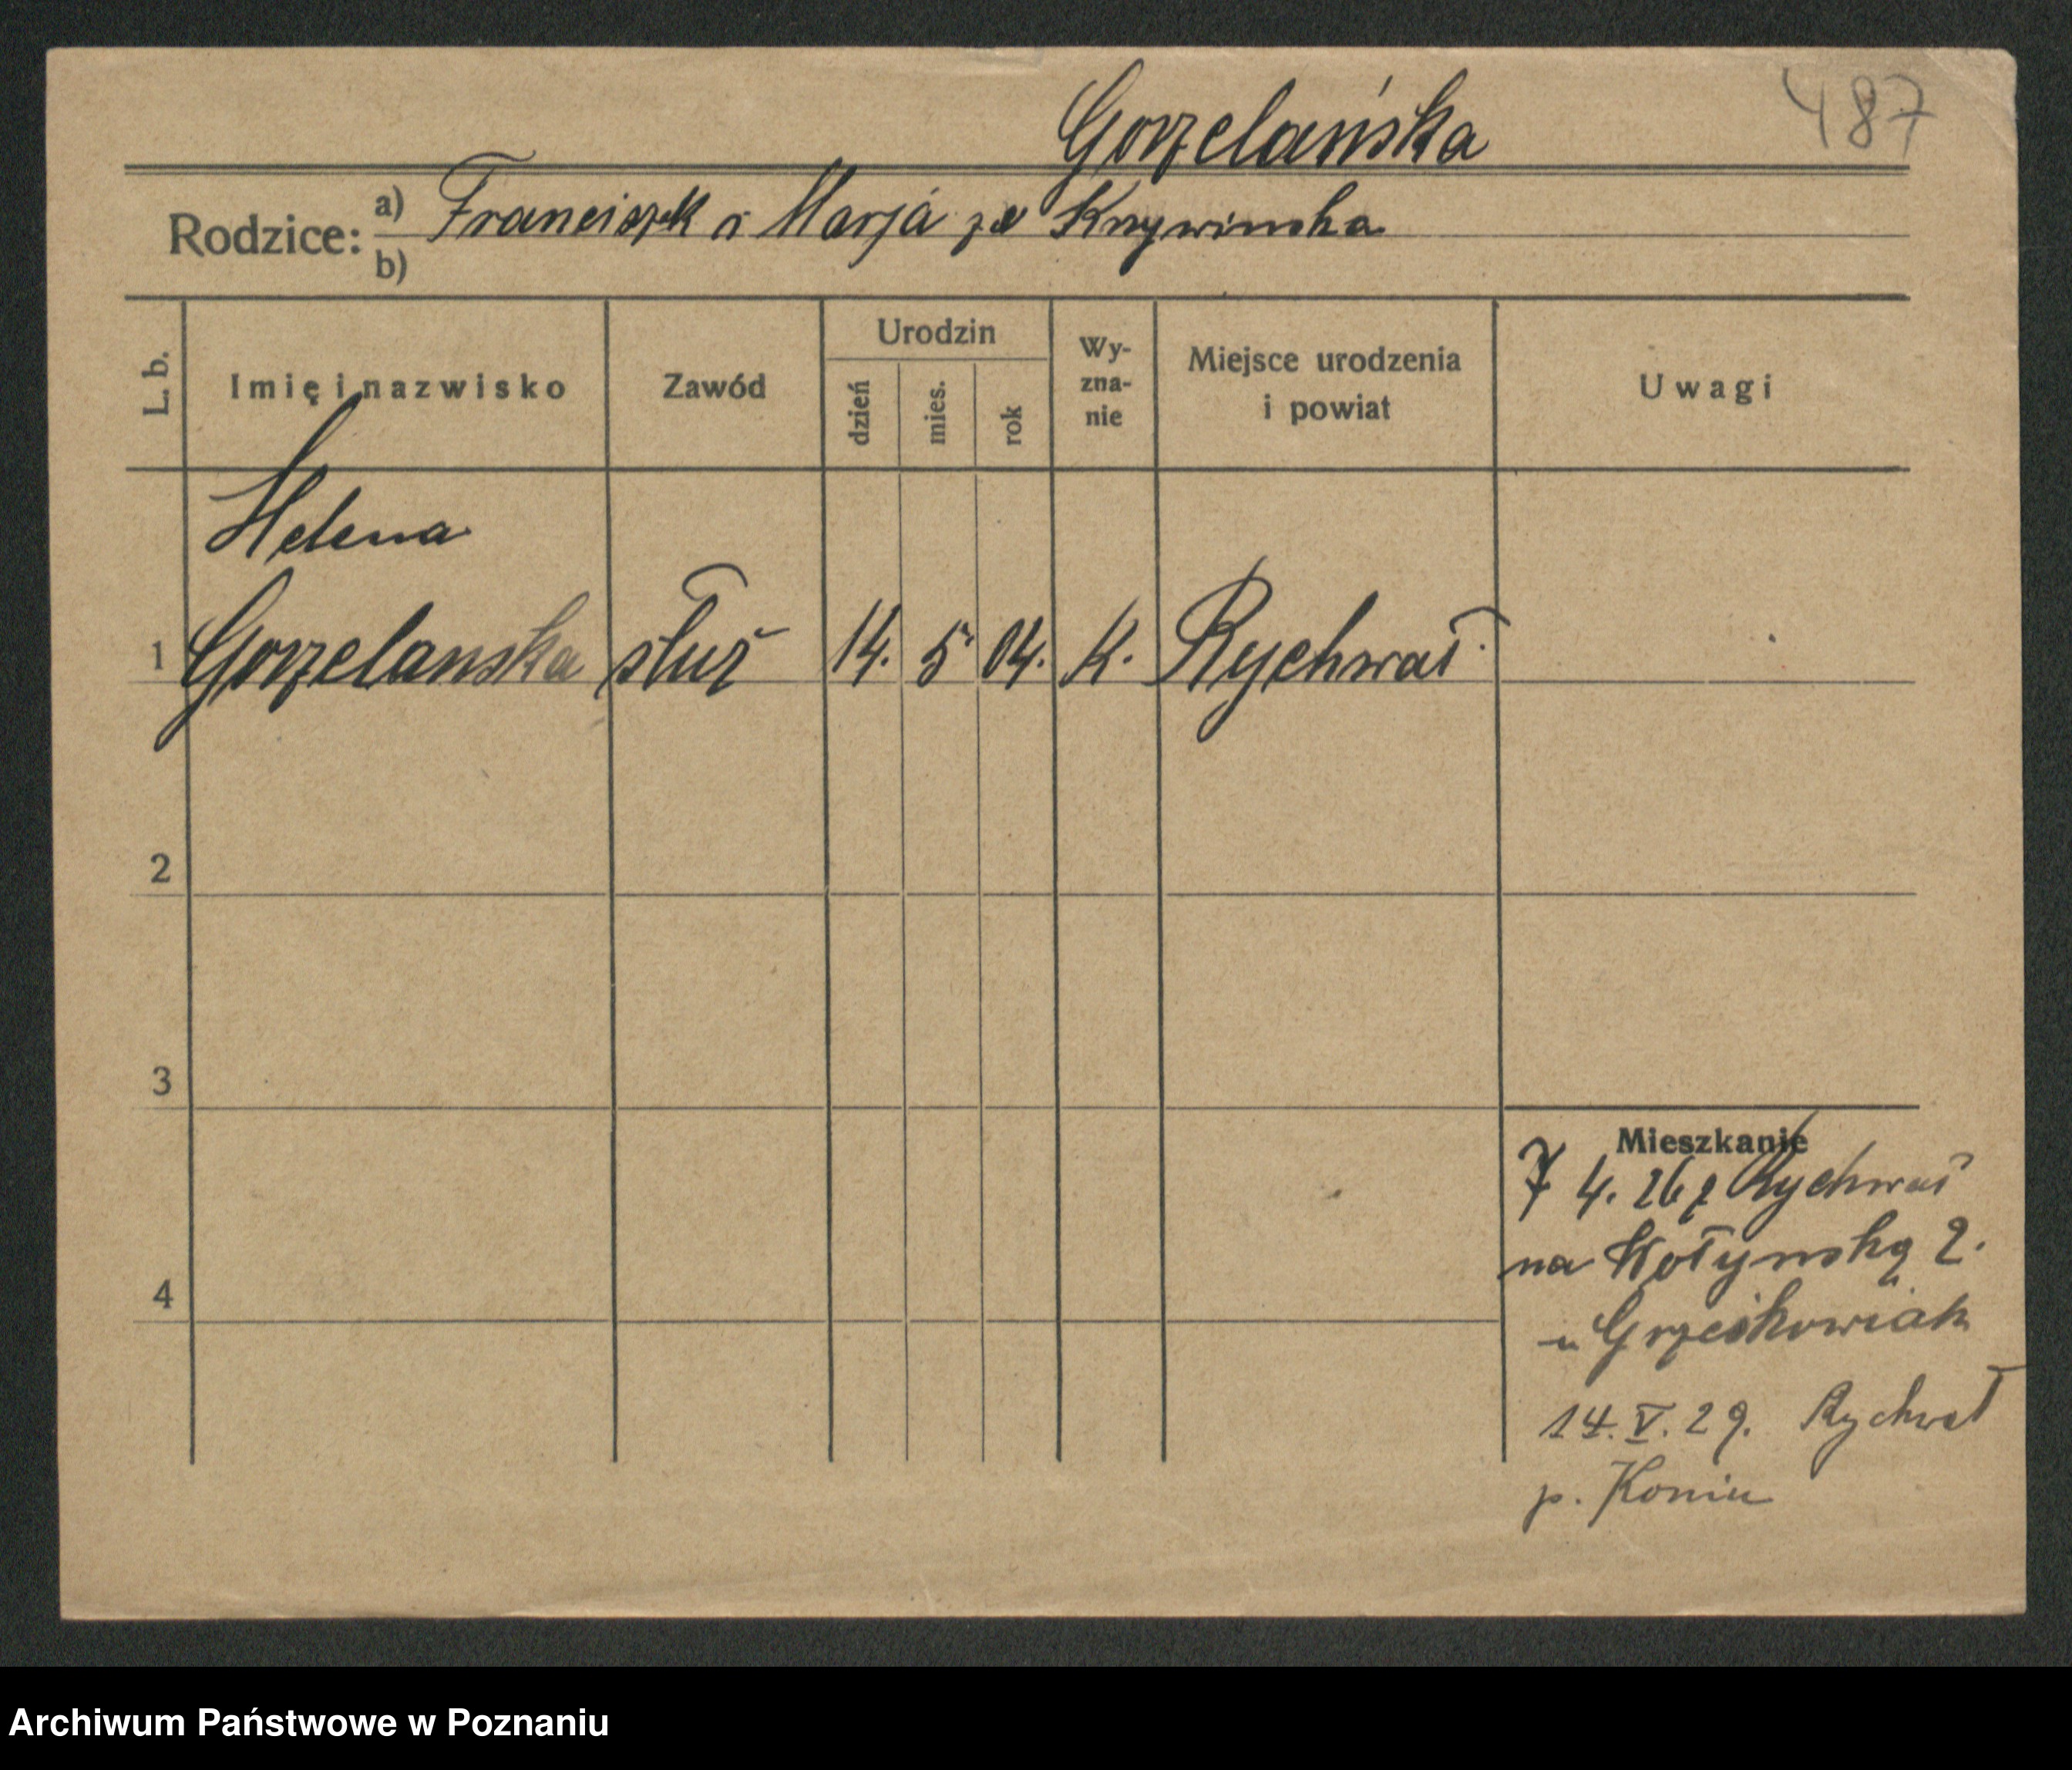 487
Gorzelańska
Rodzice: a) Franciszek i Marja ze Krzywinska
b)
L. b. Imię i nazwisko Zawód Urodzin dzień mies. rok Wy-zna-nie Miejsce urodzenia i powiat Uwagi
Helena
1 Gorzelanska służ 14. 5 04. K. Rychwał
2
3
4
Mieszkanie
7 4. 26 z Rychwał
na Wołyńską 2.
u Grześkowiak
14.V.29. Rychwał
p. Konin
Archiwum Państwowe w Poznaniu